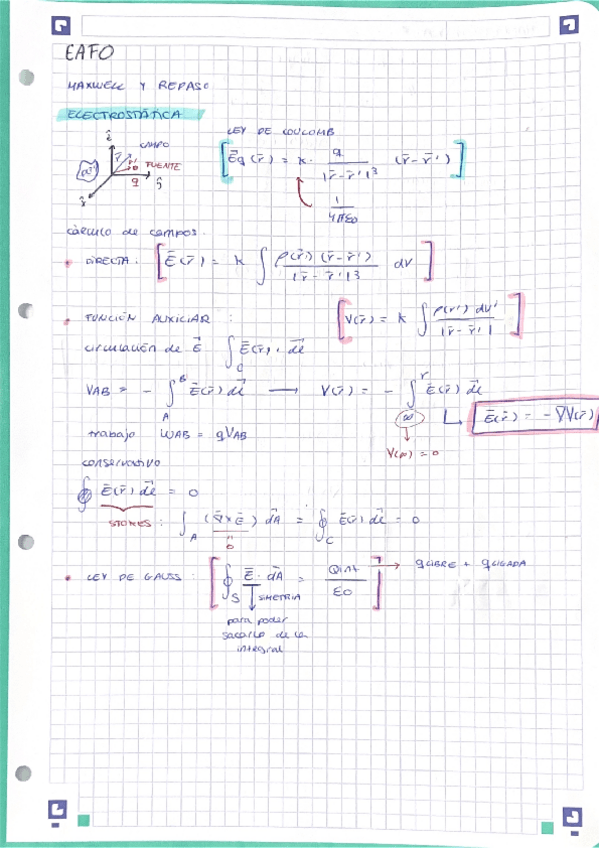 EAFO
MAXWELL Y REPASO
ELECTROSTÁTICA
LEY DE COULOMB
CAMPO
FUENTE
q
E̅q (r̅) = K · q / |r̅ - r̅'|³ (r̅ - r̅')
1 / 4πε0
cálculo de campos.
• DIRECTA: [E̅(r̅) = K ∫ ρ(r̅') (r̅ - r̅') / |r̅ - r̅'|³ dV]
• FUNCIÓN AUXILIAR : [V(r̅) = K ∫ ρ(r') dV' / |r̅ - r̅'|]
circulación de E⃗ ∫_C E̅(r̅) · dl⃗
VAB = - ∫_A^B E̅(r̅) dl⃗ → V(r̅) = - ∫_∞^r E̅(r̅) dl⃗
E̅(r̅) = - ∇V(r̅)
trabajo WAB = qVAB
V(∞) = 0
conservativo
∮ E̅(r̅) dl⃗ = 0
STOKES : ∫_A (∇̅×E̅) dA⃗ = ∮_C E̅(r̅) dl⃗ = 0
0
• LEY DE GAUSS : [∮_S E̅ · dA⃗ = Qint / ε0] → qLIBRE + qLIGADA
SIMETRIA
para poder
sacarlo de la
integral